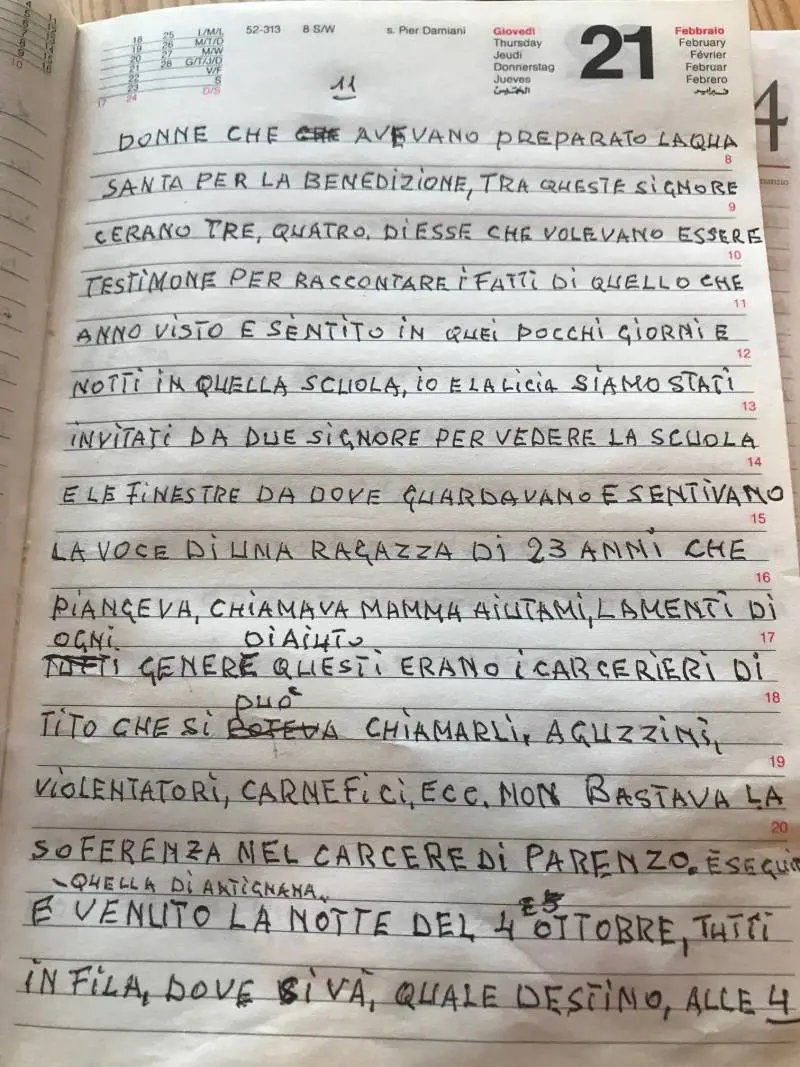 L/M/L
M/T/D
M/W
G/T/J/D
V/F
S
D/S
18 25
19 26
20 27
21 28
22
23
17 24
52-313 8 S/W s. Pier Damiani
Giovedì
Thursday
Jeudi
Donnerstag
Jueves
الخميس
21
Febbraio
February
Février
Februar
Febrero
فبراير
11
DONNE CHE CHE AVEVANO PREPARATO LAQUA
8
SANTA PER LA BENEDIZIONE, TRA QUESTE SIGNORE
9
CERANO TRE, QUATRO. DIESSE CHE VOLEVANO ESSERE
10
TESTIMONE PER RACCONTARE I FATTI DI QUELLO CHE
11
ANNO VISTO E SENTITO IN QUEI POCCHI GIORNI E
12
NOTTI IN QUELLA SCUOLA, IO E LA LICIA SIAMO STATI
13
INVITATI DA DUE SIGNORE PER VEDERE LA SCUOLA
14
E LE FINESTRE DA DOVE GUARDAVANO E SENTIVANO
15
LA VOCE DI UNA RAGAZZA DI 23 ANNI CHE
16
PIANGEVA, CHIAMAVA MAMMA AIUTAMI, LAMENTI DI
17
OGNI DI AIUTO
TUTTI GENERE QUESTI ERANO I CARCERIERI DI
18
PUO'
TITO CHE SI POTEVA CHIAMARLI, AGUZZINI,
19
VIOLENTATORI, CARNEFICI, ECC. NON BASTAVA LA
20
SOFERENZA NEL CARCERE DI PARENZO. ESEGUI
QUELLA DI ANTIGNANA.
E VENUTO LA NOTTE DEL 4 E 5 OTTOBRE, TUTTI
IN FILA, DOVE SI VÀ, QUALE DESTINO, ALLE 4
4